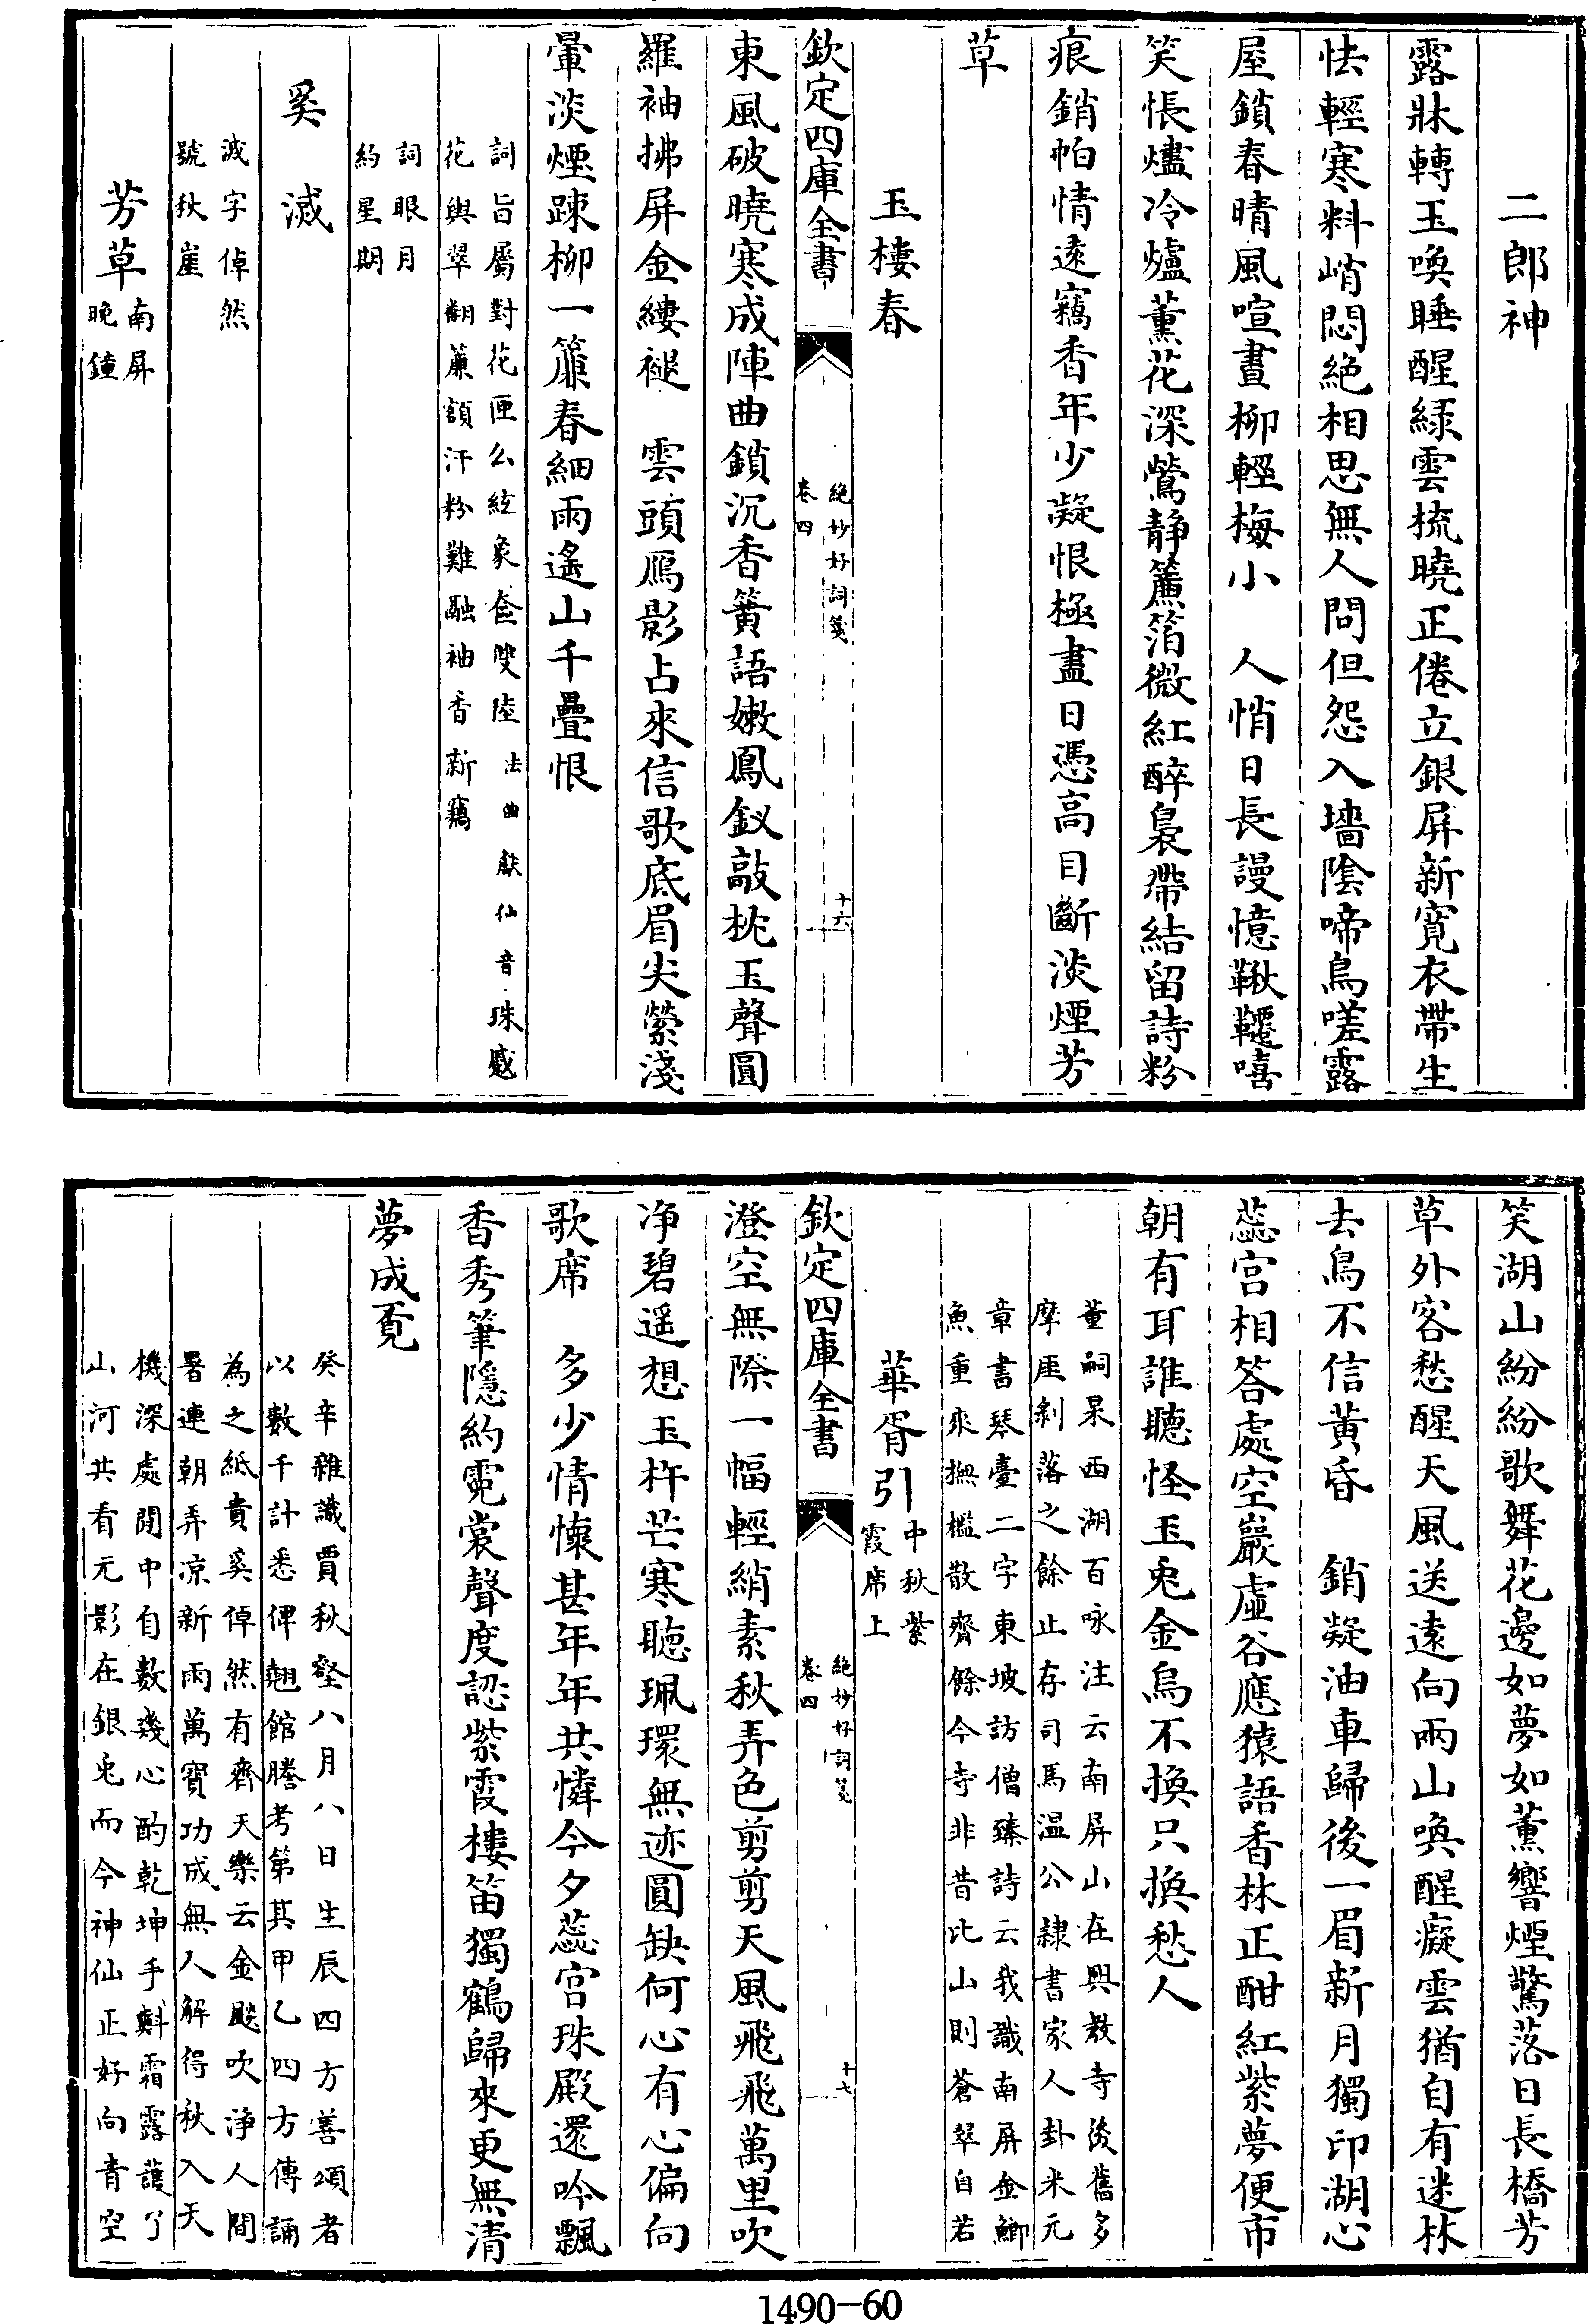 二郎神
露牀轉玉喚睡醒綠雲梳曉正倦立銀屏新寬衣帶生
怯輕寒料峭悶絶相思無人問但怨入墻陰啼鳥嗟露
屋鎖春晴風喧晝柳輕梅小　人悄日長謾憶鞦韆嘻
笑悵燼冷爐薰花深鶯静簾箔微紅醉裊帶結留詩粉
痕銷帕情遠竊香年少凝恨極盡日憑高目斷淡煙芳
草
玉樓春
欽定四庫全書
絶妙好詞箋
卷四
十六
東風破曉寒成陣曲鎖沉香簧語嫩鳳釵敲枕玉聲圓
羅袖拂屏金縷褪　雲頭雁影占來信歌底眉尖縈淺
暈淡煙踈柳一簾春細雨遙山千疊恨
詞旨屬對花匣么絃象奩雙陸法曲獻仙音珠蹙
花輿翠翻簾額汗粉難融袖香新竊
詞眼月
約星期
奚㵄
㵄字倬然
號秋崖
芳草南屏
晚鐘
笑湖山紛紛歌舞花邊如夢如薰響煙驚落日長橋芳
草外客愁醒天風送遠向兩山喚醒癡雲猶自有迷林
去鳥不信黃昏　銷凝油車歸後一眉新月獨印湖心
蕊宮相答處空巖虛谷應猿語香林正酣紅紫夢便市
朝有耳誰聽怪玉兎金烏不換只換愁人
董嗣杲西湖百咏注云南屏山在興教寺後舊多
摩厓剥落之餘止存司馬温公隸書家人卦米元
章書琴臺二字東坡訪僧臻詩云我識南屏金鯽
魚重來撫檻散齋餘今寺非昔比山則蒼翠自若
華胥引中秋紫
霞席上
欽定四庫全書
絶妙好詞箋
卷四
十七
澄空無際一幅輕綃素秋弄色剪剪天風飛飛萬里吹
净碧遥想玉杵芒寒聽珮環無迹圓缺何心有心偏向
歌席　多少情懷甚年年共憐今夕蕊宮珠殿還吟飄
香秀筆隱約霓裳聲度認紫霞樓笛獨鶴歸來更無清
夢成覔
癸辛雜識賈秋壑八月八日生辰四方善頌者
以數千計悉俾翹館謄考第其甲乙四方傳誦
為之紙貴奚倬然有齊天樂云金飈吹淨人間
暑連朝弄凉新雨萬寳功成無人解得秋入天
機深處閒中自數幾心酌乾坤手斟霜露護了
山河共看元影在銀兎而今神仙正好向青空
1490-60